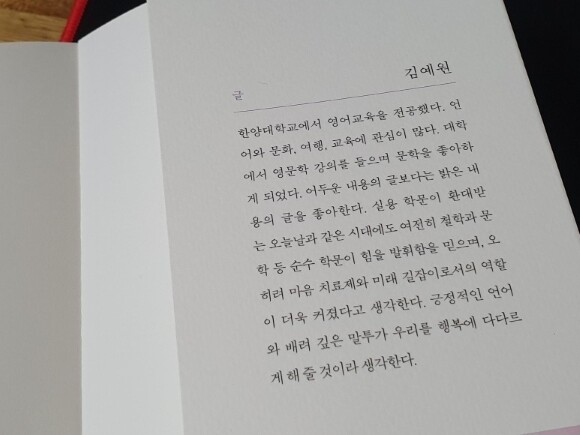 글 김예원
한양대학교에서 영어교육을 전공했다. 언
어와 문화, 여행, 교육에 관심이 많다. 대학
에서 영문학 강의를 들으며 문학을 좋아하
게 되었다. 어두운 내용의 글보다는 밝은 내
용의 글을 좋아한다. 실용 학문이 환대받
는 오늘날과 같은 시대에도 여전히 철학과 문
학 등 순수 학문이 힘을 발휘함을 믿으며, 오
히려 마음 치료제와 미래 길잡이로서의 역할
이 더욱 커졌다고 생각한다. 긍정적인 언어
와 배려 깊은 말투가 우리를 행복에 다다르
게 해 줄 것이라 생각한다.